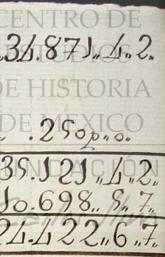 CENTRO DE
34.871..4..2.
E HISTORIA
DE MEXICO
.250p..0.
35.121..4..2.
10.698..5..7.
24.422..6..7.